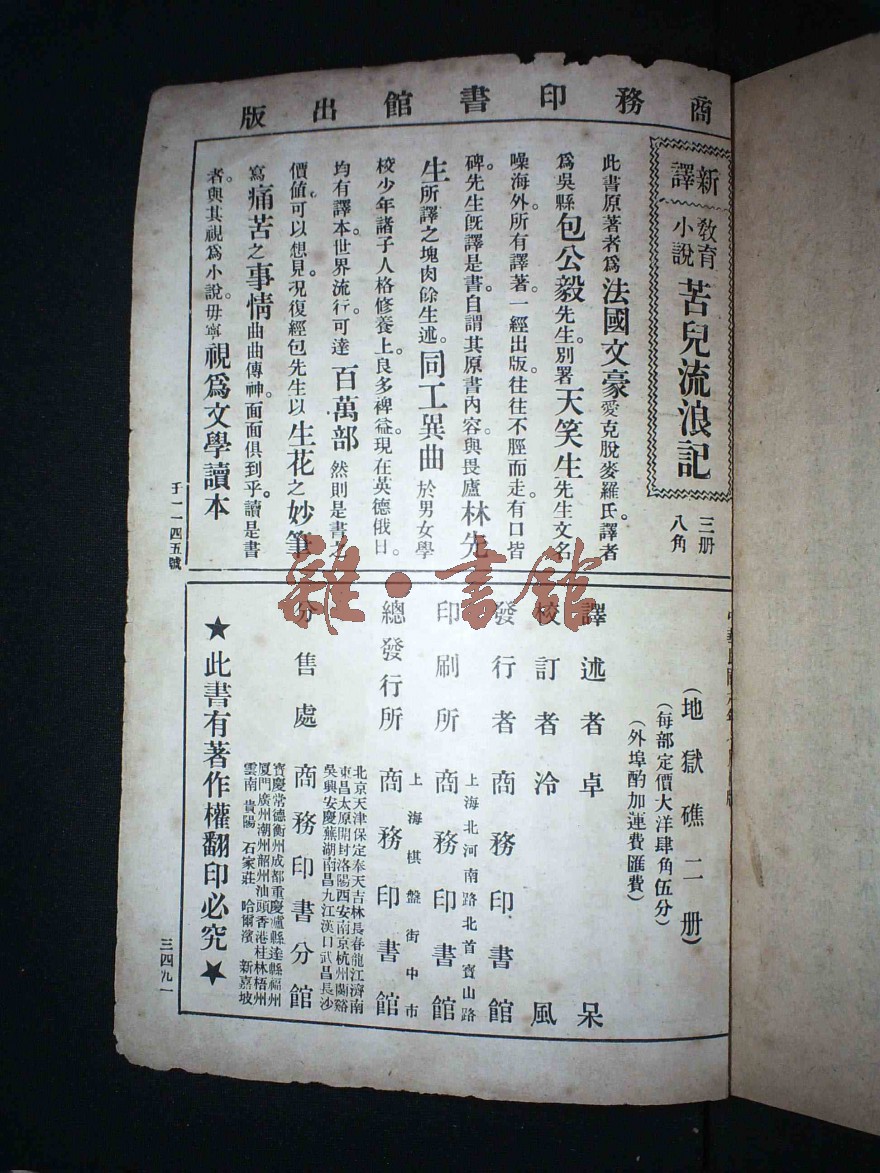 商務印書館出版
新譯
教育小說
苦兒流浪記
三册
八角
此書原著者爲法國文豪愛克脫麥羅氏。譯者
爲吳縣包公毅先生。別署天笑生先生文名
噪海外。所有譯著。一經出版。往往不脛而走。有口皆
碑。先生旣譯是書。自謂其原書內容。與畏廬林先
生所譯之塊肉餘生述。同工異曲於男女學
校少年諸子人格修養上。良多裨益。現在英德俄日。
均有譯本。世界流行。可達百萬部然則是書之
價値可以想見。况復經包先生以生花之妙筆
寫痛苦之事情曲曲傳神。面面俱到乎。讀是書
者。與其視爲小說。毋寧視爲文學讀本
壬一一四五號
(地獄礁二册)
(每部定價大洋肆角伍分)
(外埠酌加運費匯費)
譯述者 卓呆
校訂者 泠風
發行者 商務印書館
上海北河南路北首寶山路
印刷所 商務印書館
上海棋盤街中市
總發行所 商務印書館
北京天津保定奉天吉林長春龍江濟南
東昌太原開封洛陽西安南京杭州蘭谿
吳興安慶蕪湖南昌九江漢口武昌長沙
分售處 商務印書分館
寶慶常德衡州成都重慶瀘縣達縣福州
厦門廣州潮州韶州汕頭香港桂林梧州
雲南 貴陽 石家莊 哈爾濱 新嘉坡
★此書有著作權翻印必究★
雜·書館